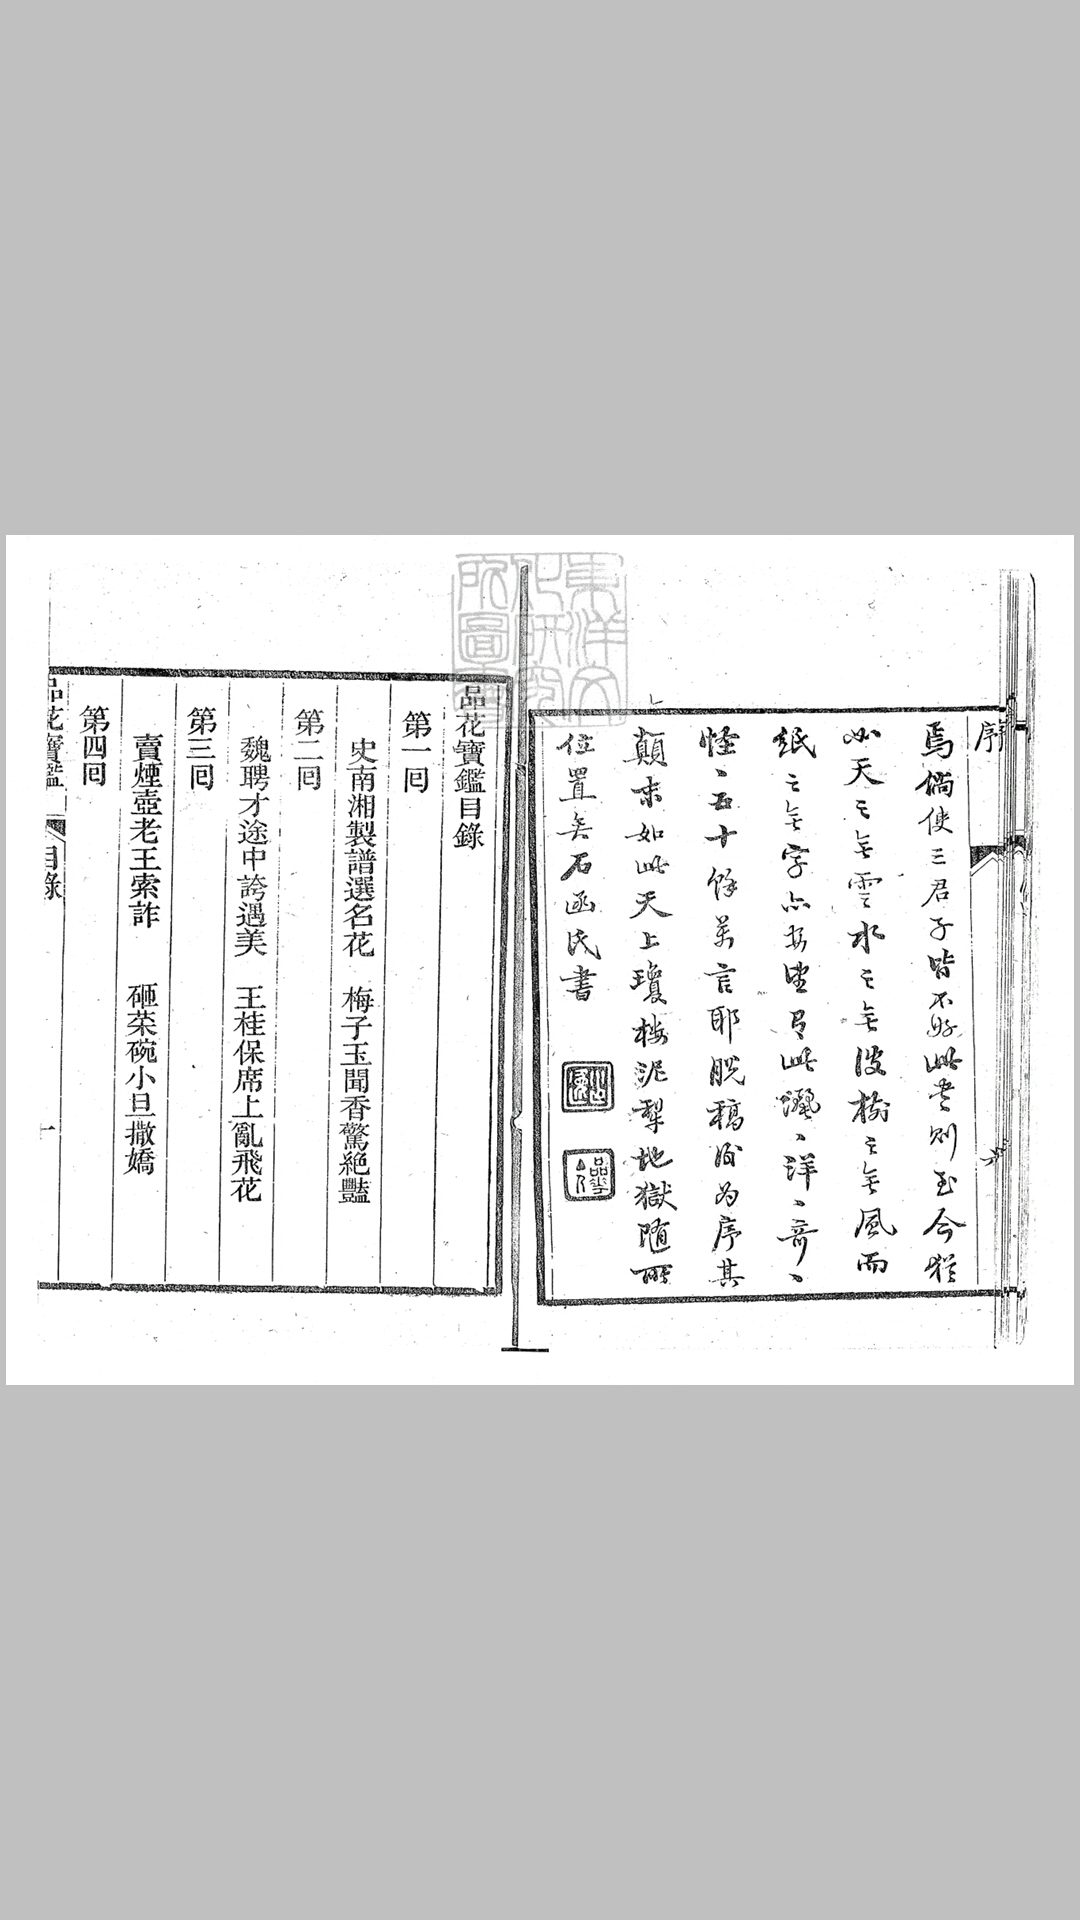 序
焉倘使三君子皆不好此書則至今猶
如天之無雲水之無波樹之無風而
紙之無字亦安望有此洒洒洋洋奇奇
怪怪五十餘萬言耶脫稿後為序其
顛末如此天上瓊樓泥犁地獄隨所
位置矣石函氏書
品花寶鑑目錄
第一回
史南湘製譜選名花　梅子玉聞香驚絕豔
第二回
魏聘才途中誇遇美　王桂保席上亂飛花
第三回
賣煙壺老王索詐　砸茶碗小旦撒嬌
第四回
品花寶鑑　目錄　一
東洋文
化研究
所圖書